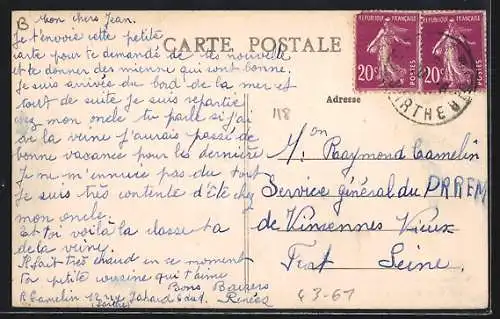 B Mon chers Jean.
Je t'envoie cette petite
carte pour te demandé de tes nouvelle
et te donner des mienne qui sont bonne.
Je suis arrivée du bord de la mer et
tout de suite je suis repartie
chez mon oncle tu parle si j'ai
de la veine j'aurais passé de
bonne vacance pour les dernière
Je m'ennuise pas du tout
Je suis très contente d'être chez
mon oncle.
Et toi voilà la classe ta
de la veine.
Il fait très chaud en ce moment
Ta petite cousine qui t'aime
Bons Baisers
R Camelin 12 rue
Renée
CARTE POSTALE
Adresse
118
M. on Raymond Camelin
Service général du PRREM
de Vincennes Vieux
Fort Seine.
43-61
REPUBLIQUE FRANÇAISE
20c POSTES
REPUBLIQUE FRANÇAISE
20c POSTES
RTHE